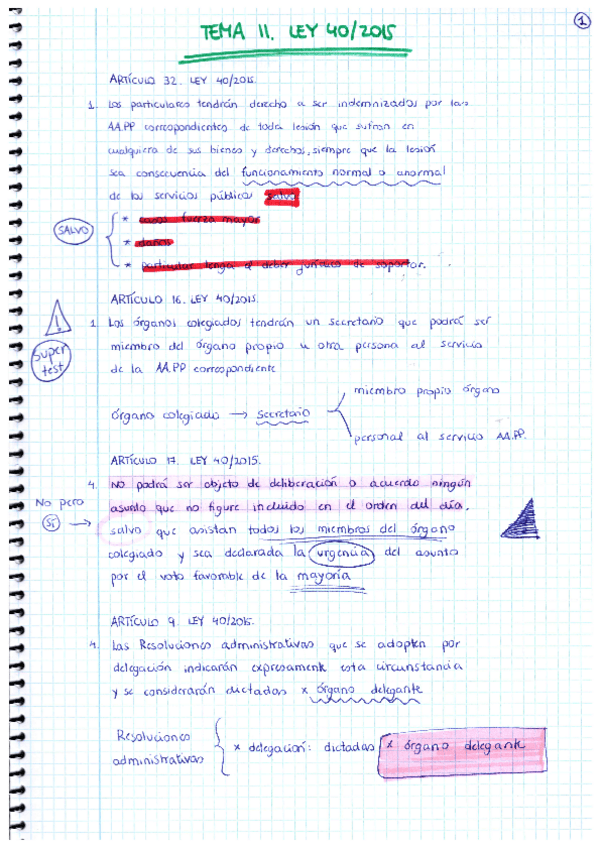 1
TEMA 11. LEY 40/2015
ARTÍCULO 32. LEY 40/2015.
1. Los particulares tendrán derecho a ser indemnizados por las
AA.PP correspondientes de toda lesión que sufran en
cualquiera de sus bienes y derechos, siempre que la lesión
sea consecuencia del funcionamiento normal o anormal
de los servicios públicos salvo
SALVO
* casos fuerza mayor
* daños
* particular tenga el deber jurídico de soportar.
ARTÍCULO 16. LEY 40/2015
1 Los órganos colegiados tendrán un secretario que podrá ser
miembro del órgano propio u otra persona al servicio
de la AA.PP correspondiente
!
super
test
miembro propio órgano
órgano colegiado → Secretario
personal al servicio AA.PP.
ARTÍCULO 17. LEY 40/2015.
4. No podrá ser objeto de deliberación o acuerdo ningún
asunto que no figure incluido en el orden del día,
No pero
Sí →
salvo que asistan todos los miembros del órgano
colegiado y sea declarada la urgencia del asunto
por el voto favorable de la mayoría
ARTÍCULO 9. LEY 40/2015.
4. Las Resoluciones administrativas que se adopten por
delegación indicarán expresamente esta circunstancia
y se considerarán dictadas x órgano delegante
Resoluciones
administrativas
* delegación: dictadas x órgano delegante